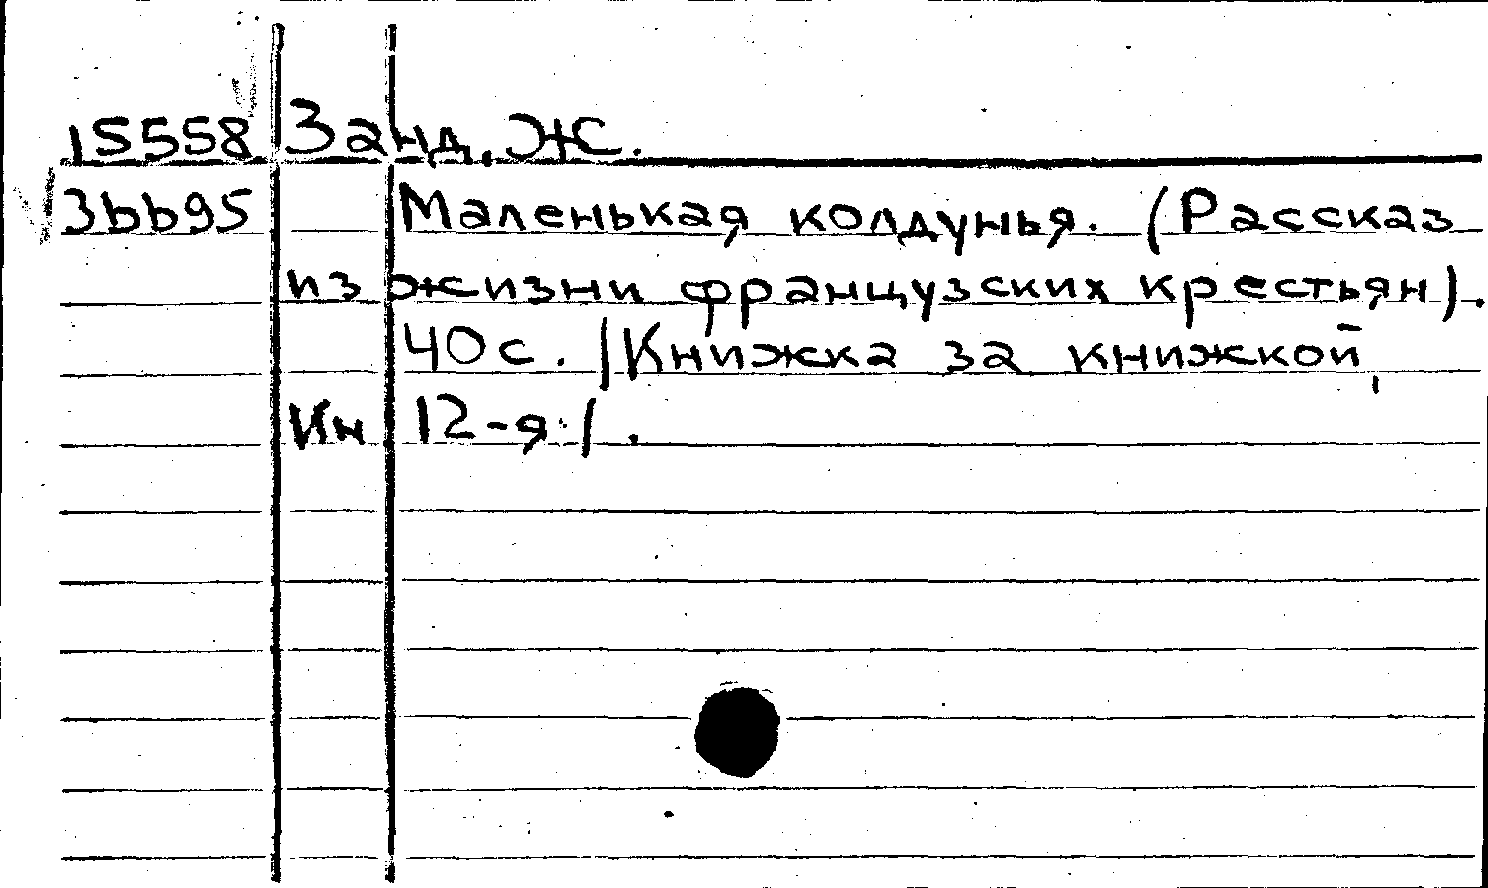 15558 Занд, Ж.
36695 Маленькая колдунья. (Рассказ
из жизни французских крестьян).
40 с. /Книжка за книжкой,
Ин 12-я/.